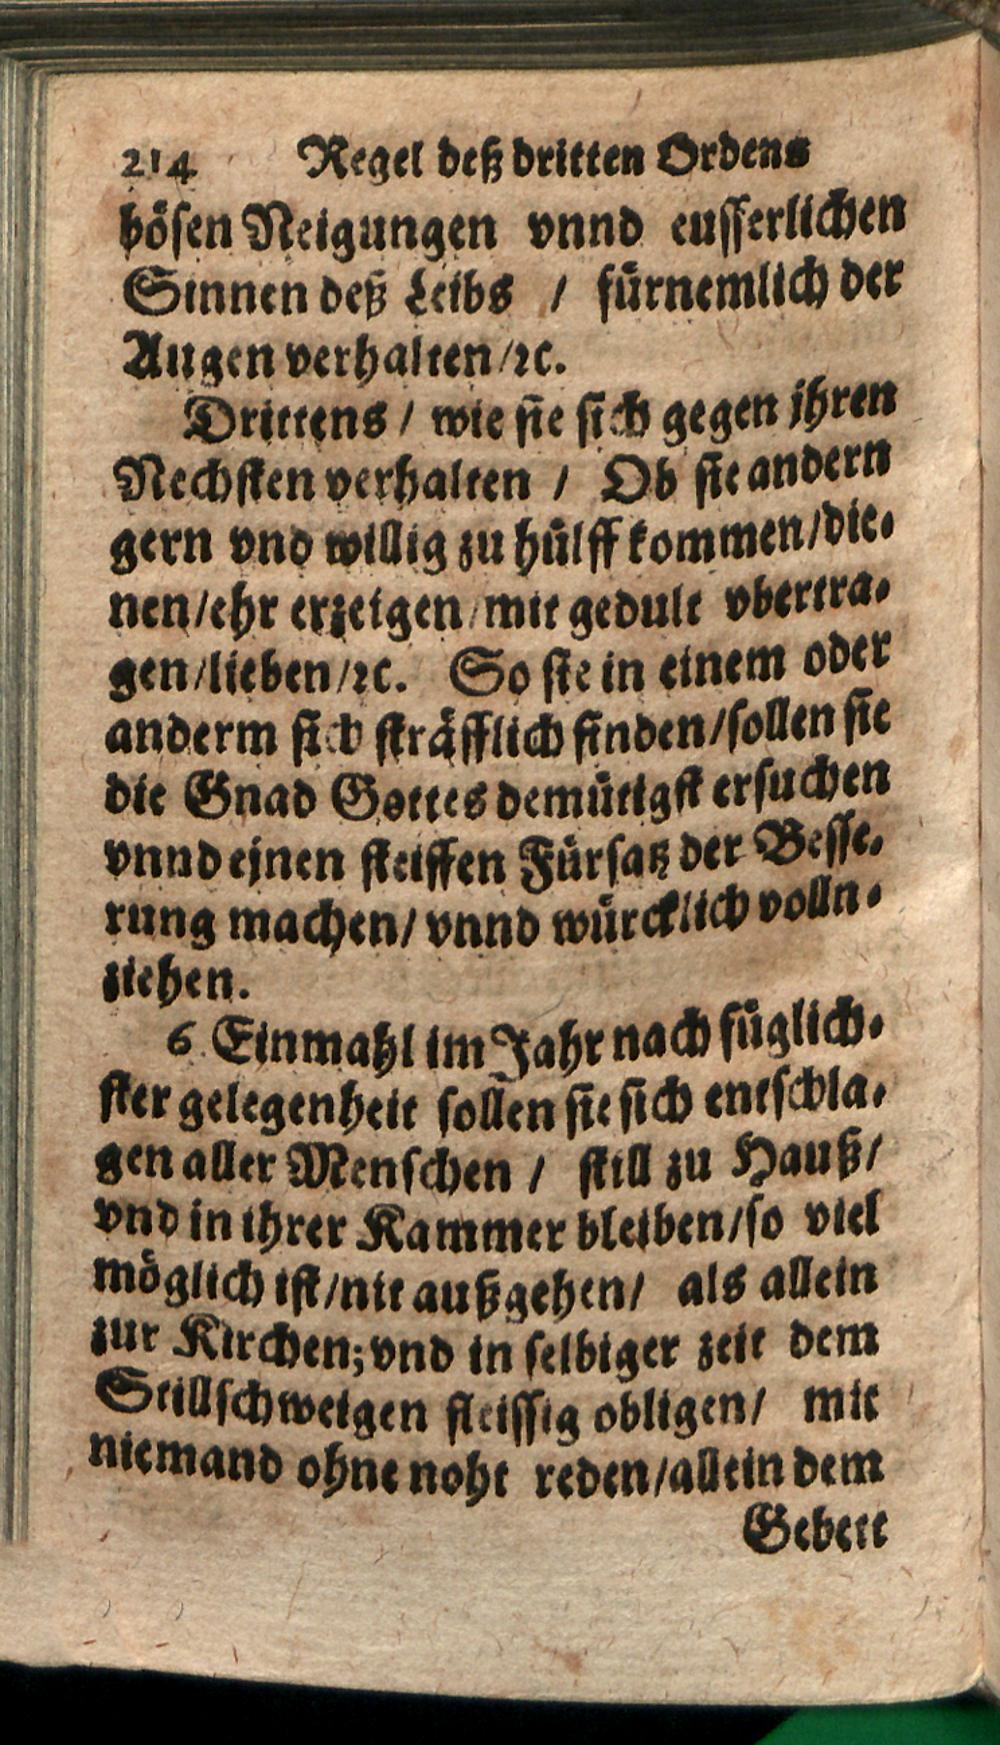 214 Regel deß dritten Ordens
bösen Neigungen vnnd eusserlichen
Sinnen deß Leibs / fürnemlich der
Augen verhalten/ꝛc.
Drittens / wie sie sich gegen jhren
Nechsten verhalten / Ob sie andern
gern vnd willig zu hülff kommen/die-
nen/ehr erzeigen/mit gedult vbertra-
gen/lieben/ꝛc. So sie in einem oder
anderm sich sträfflich finden/sollen sie
die Gnad Gottes demütigst ersuchen
vnnd einen steiffen Fürsatz der Besse-
rung machen/ vnnd würcklich volln-
ziehen.
6. Einmahl im Jahr nach füglich-
ster gelegenheit sollen sie sich entschla-
gen aller Menschen / still zu Hauß/
vnd in ihrer Kammer bleiben/so viel
möglich ist/nit außgehen/ als allein
zur Kirchen; vnd in selbiger zeit dem
Stillschweigen fleissig obligen/ mit
niemand ohne noht reden/allein dem
Gebett